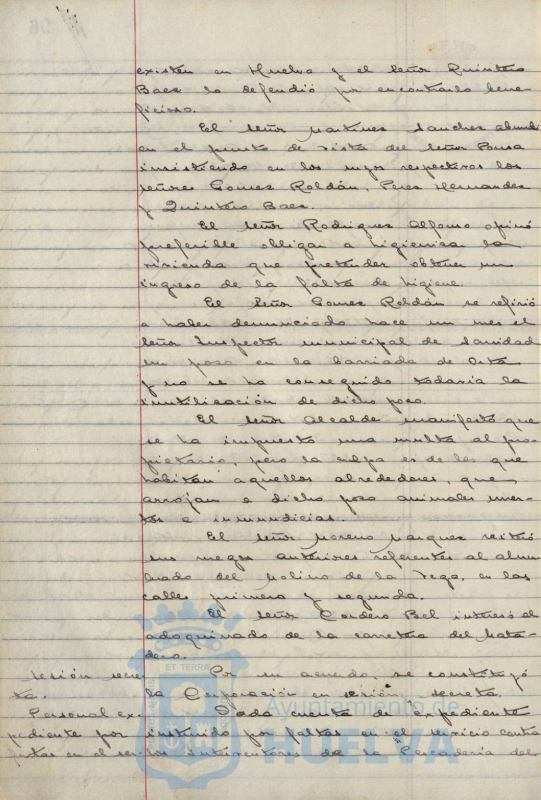 existen en Huelva y el Señor Quintero
Baez lo defendió por encontrarlo bene-
ficioso.
El Señor Martinez Sanchez abundó
en el punto de vista del Señor Ponsa
insistiendo en los suyos respectivos los
señores Gomez Roldán, Perez Hernandez
y Quintero Baez.
El Señor Rodriguez Alfonso opinó
preferible obligar a higienizar la
vivienda que pretender obtener un
ingreso de la falta de higiene.
El Señor Gomez Roldán se refirió
a haber denunciado hace un mes el
Señor Inspector municipal de Sanidad
un pozo en la barriada de Orta
y no se ha conseguido todavia la
inutilización de dicho pozo.
El Señor Alcalde manifestó que
se ha impuesto una multa al pro-
pietario, pero la culpa es de los que
habitan aquellos alrededores, que
arrojan a dicho pozo animales muer-
tos e inmundicias.
El Señor Moreno Marquez reiteró
sus ruegos anteriores referentes al alum-
brado del Molino de la Vega, en las
calles primera y segunda.
El Señor Cordero Bel interesó el
adoquinado de la carretera del Mata-
dero.
Sesión secre-
ta.
Por su acuerdo, se constituyó
la Corporación en sesión secreta.
Personal ex-
pediente por
faltas en el ser-
Dada cuenta de expediente
instruido por faltas en el servicio contra
los Interventores de la Pescadería del
ET TERRÆ
Ayuntamiento de
HUELVA